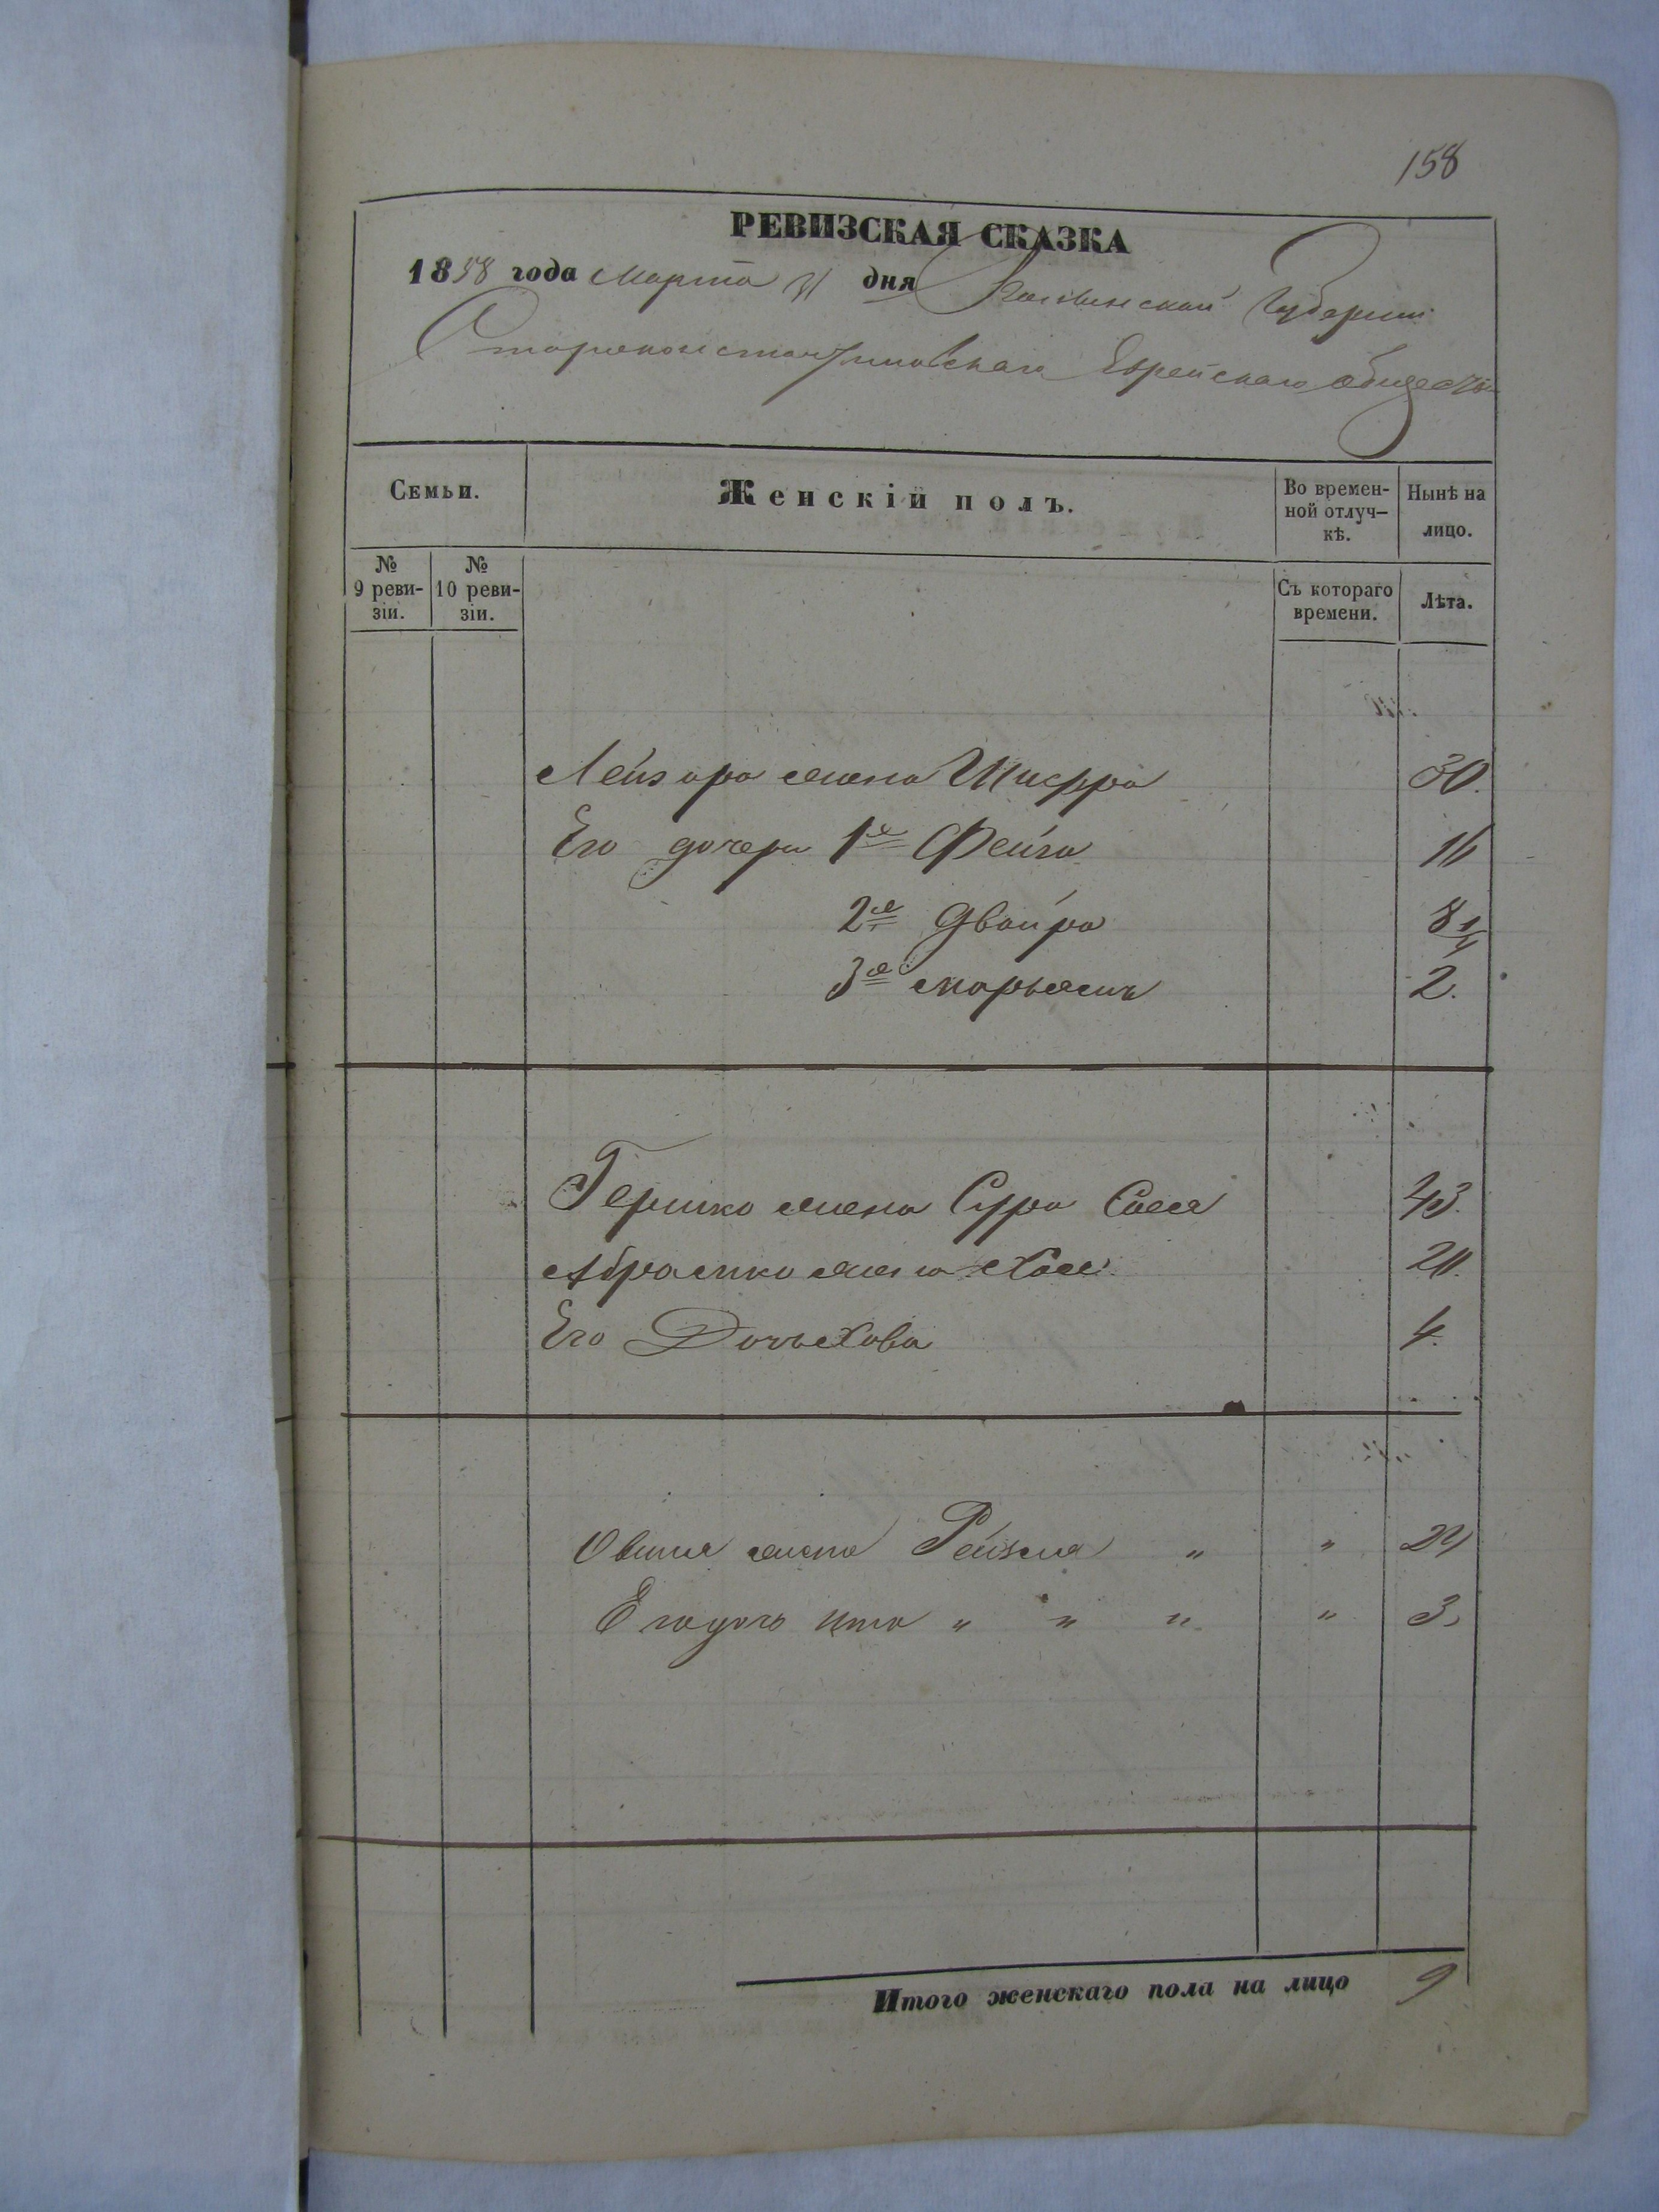 158
РЕВИЗСКАЯ СКАЗКА
1858 года Марта 31 дня Волынской Губернии
Староконстантиновскаго Еврейскаго общества
Семьи.
Женскій полъ.
Во времен-
ной отлуч-
кѣ.
Нынѣ на
лицо.
№
9 реви-
зіи.
№
10 реви-
зіи.
Съ котораго
времени.
Лѣта.
Лейзора жена Шифра 30.
Его дочери 1я Фейга 16
2я Двойра 8 1/4
3я Марьямъ 2.
Гершко жена Сура Сося 43.
Абрамко жена Хая
Его Дочь Хова 4.
жена Рейзля " "
Его дочь Ита " " " " 3.
Итого женскаго пола на лицо 9